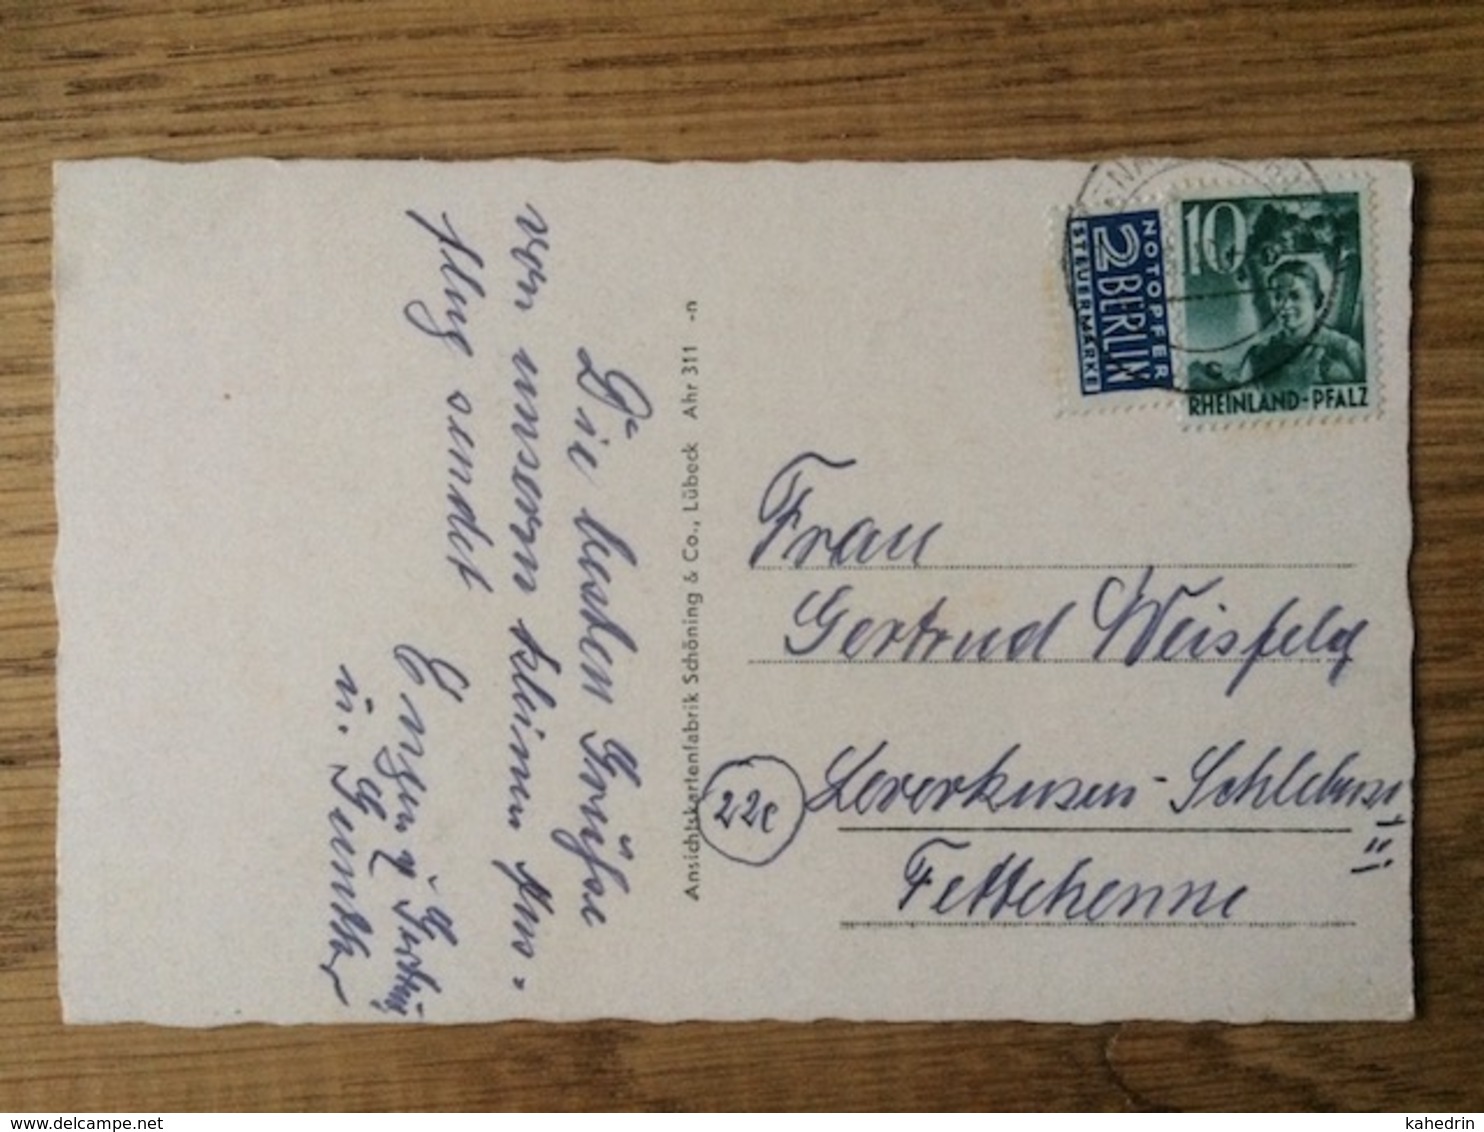 Die besten Grüsse
von unserm kleinen Aus-
flug sendet
u. Günther
Ansichtskartenfabrik Schöning & Co., Lübeck Ahr 311 -n
NOTOPFER
2 BERLIN
STEUERMARKE
10
RHEINLAND-PFALZ
Frau
Gertrud Weisfeld
22c
Leverkusen-Schlebusch
II
Fettehenne
www.delcampe.net
kahedrin